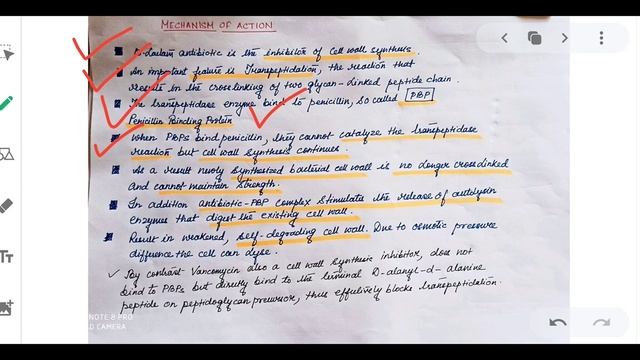 MECHANISM OF ACTION
β-lactam antibiotic is the inhibitor of cell wall synthesis.
An important feature is Transpeptidation, the reaction that
results in the crosslinking of two glycan-linked peptide chain.
The transpeptidase enzyme bind to penicillin, so called PBP
Penicillin Binding Protein
When PBPs bind penicillin, they cannot catalyze the transpeptidase
reaction but cell wall synthesis continues.
As a result newly synthesized bacterial cell wall is no longer crosslinked
and cannot maintain strength.
In addition antibiotic-PBP complex stimulate the release of autolysin
enzymes that digest the existing cell wall.
Result in weakened, self-degrading cell wall. Due to osmotic pressure
difference the cell can lyse.
By contrast Vancomycin also a cell wall synthesis inhibitor, does not
bind to PBPs but directly bind to the terminal D-alanyl-d-alanine
peptide on peptidoglycan precursor, thus effectively blocks transpeptidation.
NOTE 8 PRO
CAMERA
Tt